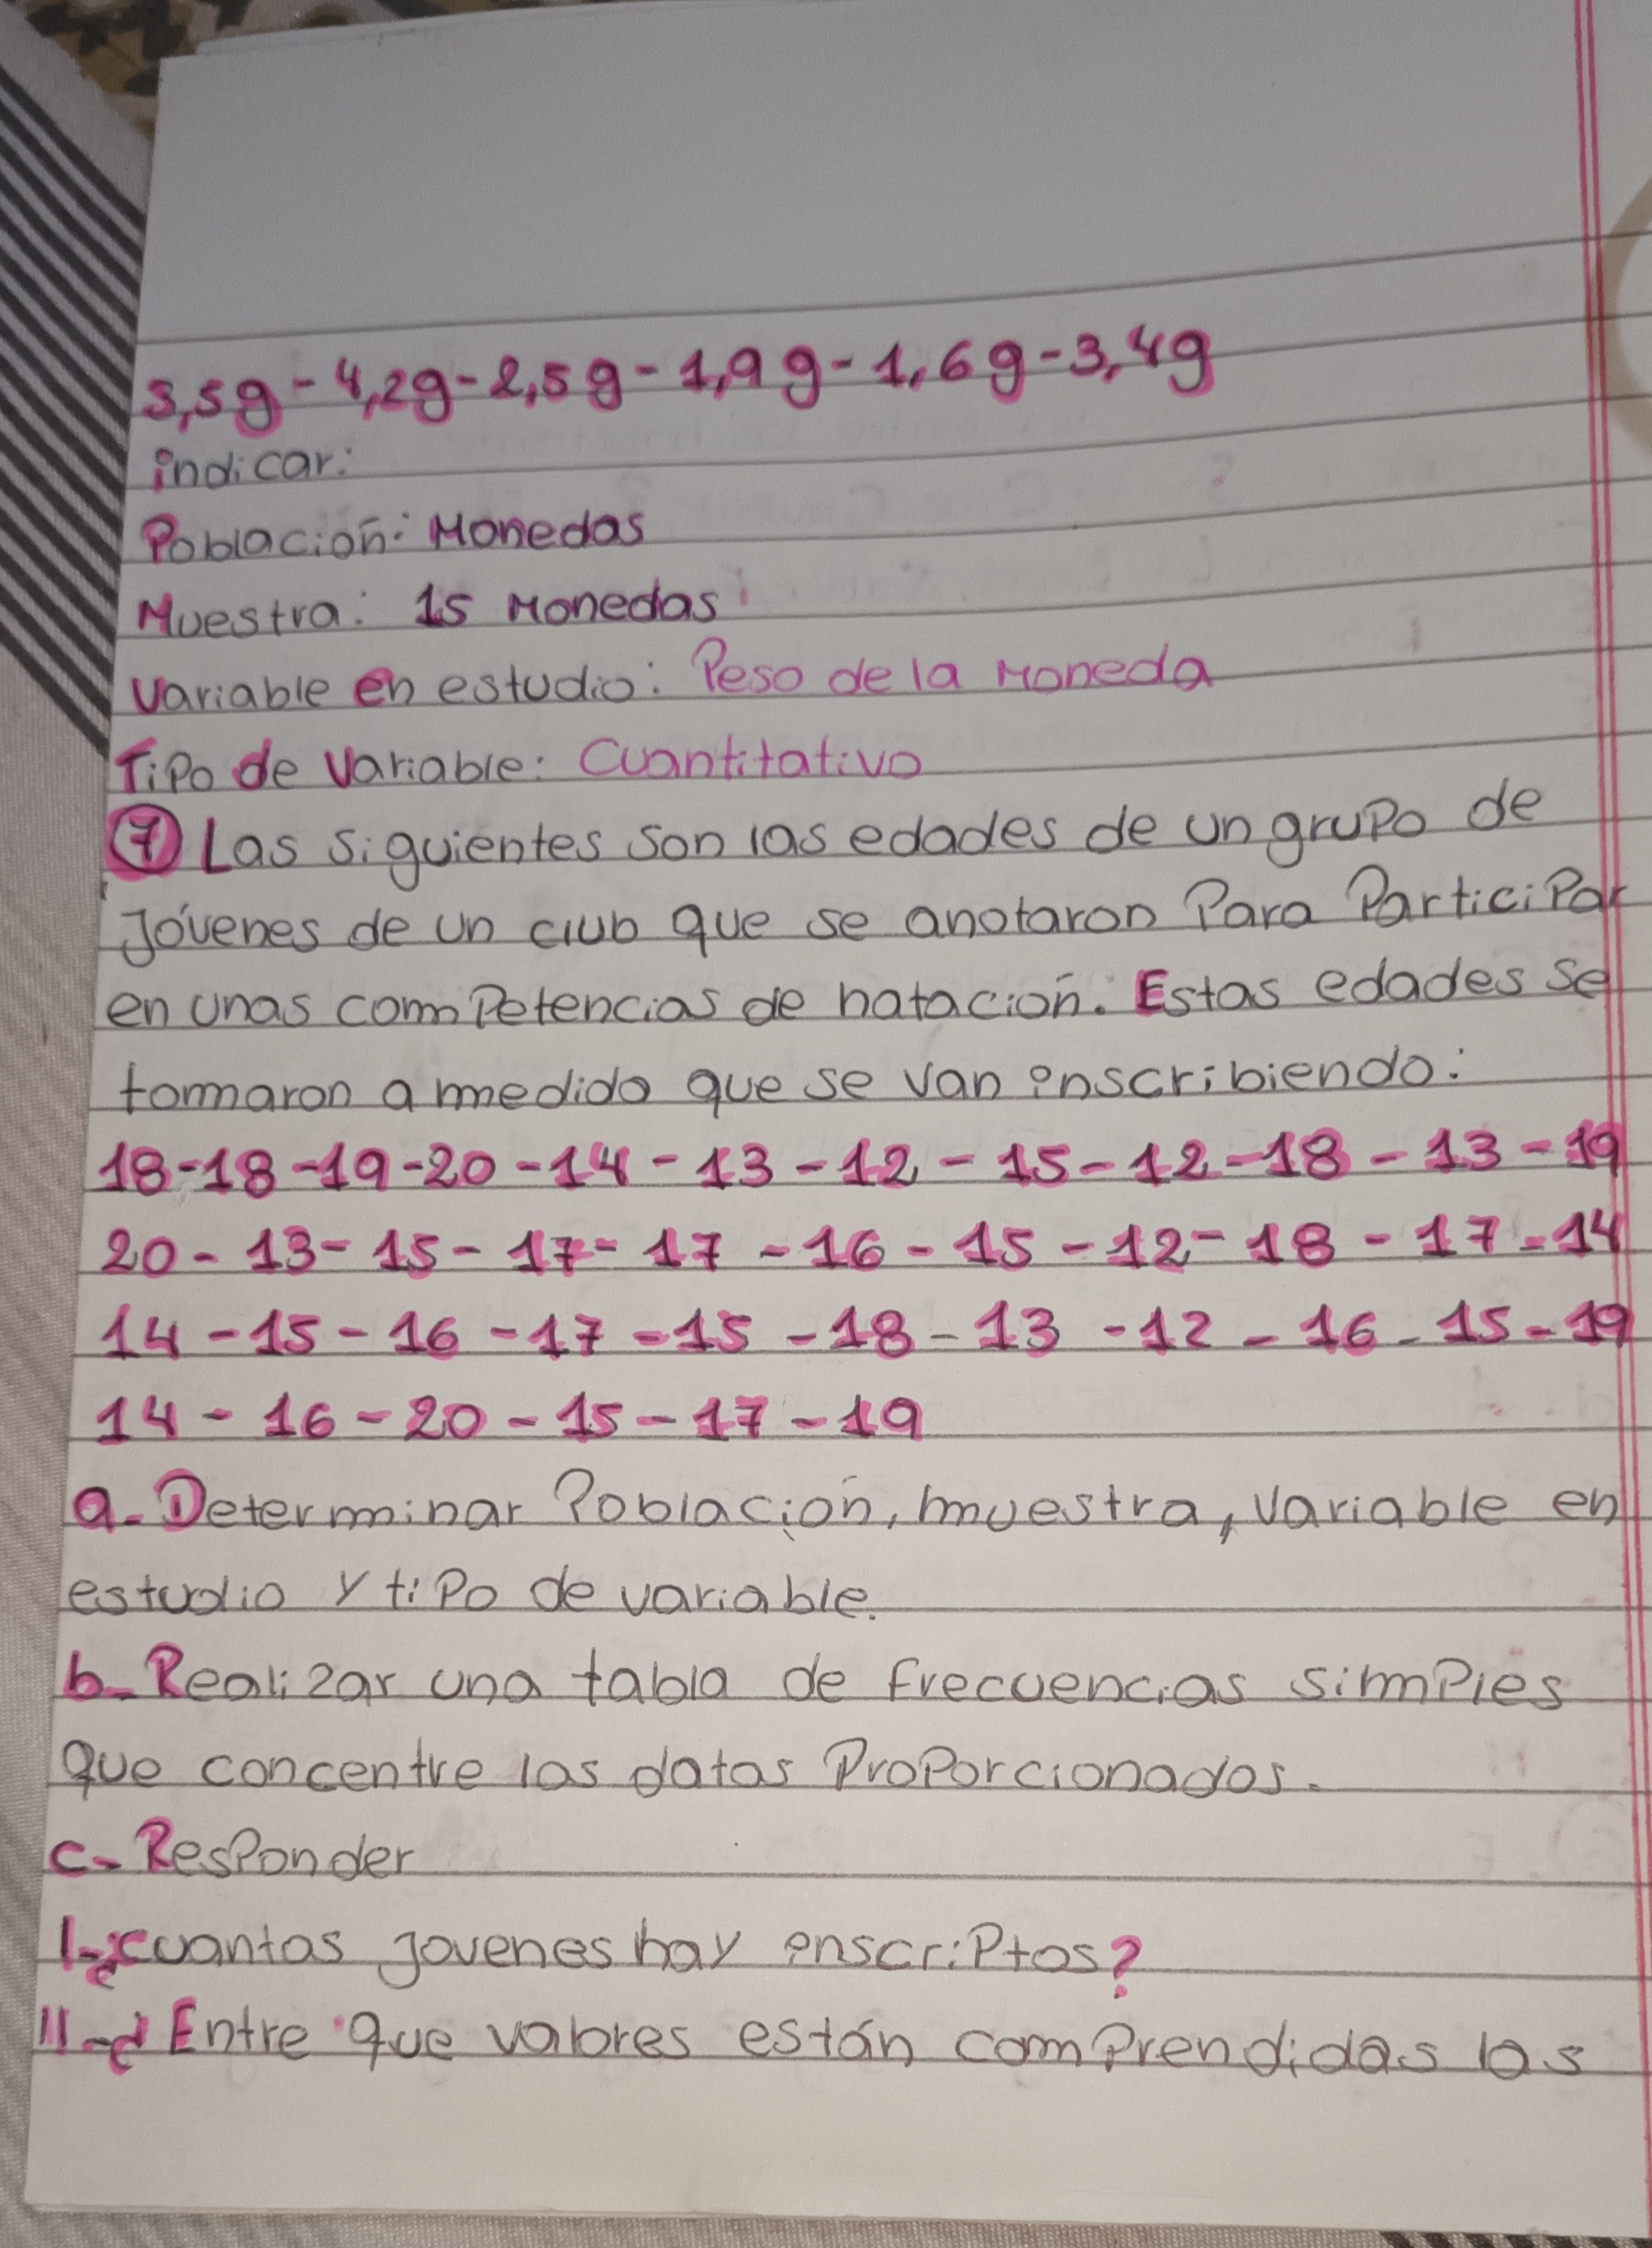 3,5g - 4,2g - 2,5g - 1,9g - 1,6g - 3,4g
indicar:
Población: Monedas
Muestra: 15 Monedas
Variable en estudio: Peso de la Moneda
Tipo de Variable: Cuantitativo
7 Las siguientes son las edades de un grupo de
Jóvenes de un club que se anotaron Para Participar
en unas competencias de natación. Estas edades se
tomaron a medido que se van inscribiendo:
18-18-19-20-14-13-12-15-12-18-13-19
20-13-15-17-17-16-15-12-18-17-14
14-15-16-17-15-18-13-12-16-15-19
14-16-20-15-17-19
a- Determinar Población, muestra, variable en
estudio y tipo de variable.
b- Realizar una tabla de frecuencias simples
que concentre los datos Proporcionados.
c- Responder
I- ¿cuantos jovenes hay inscriptos?
II- ¿Entre que valores están comprendidas las